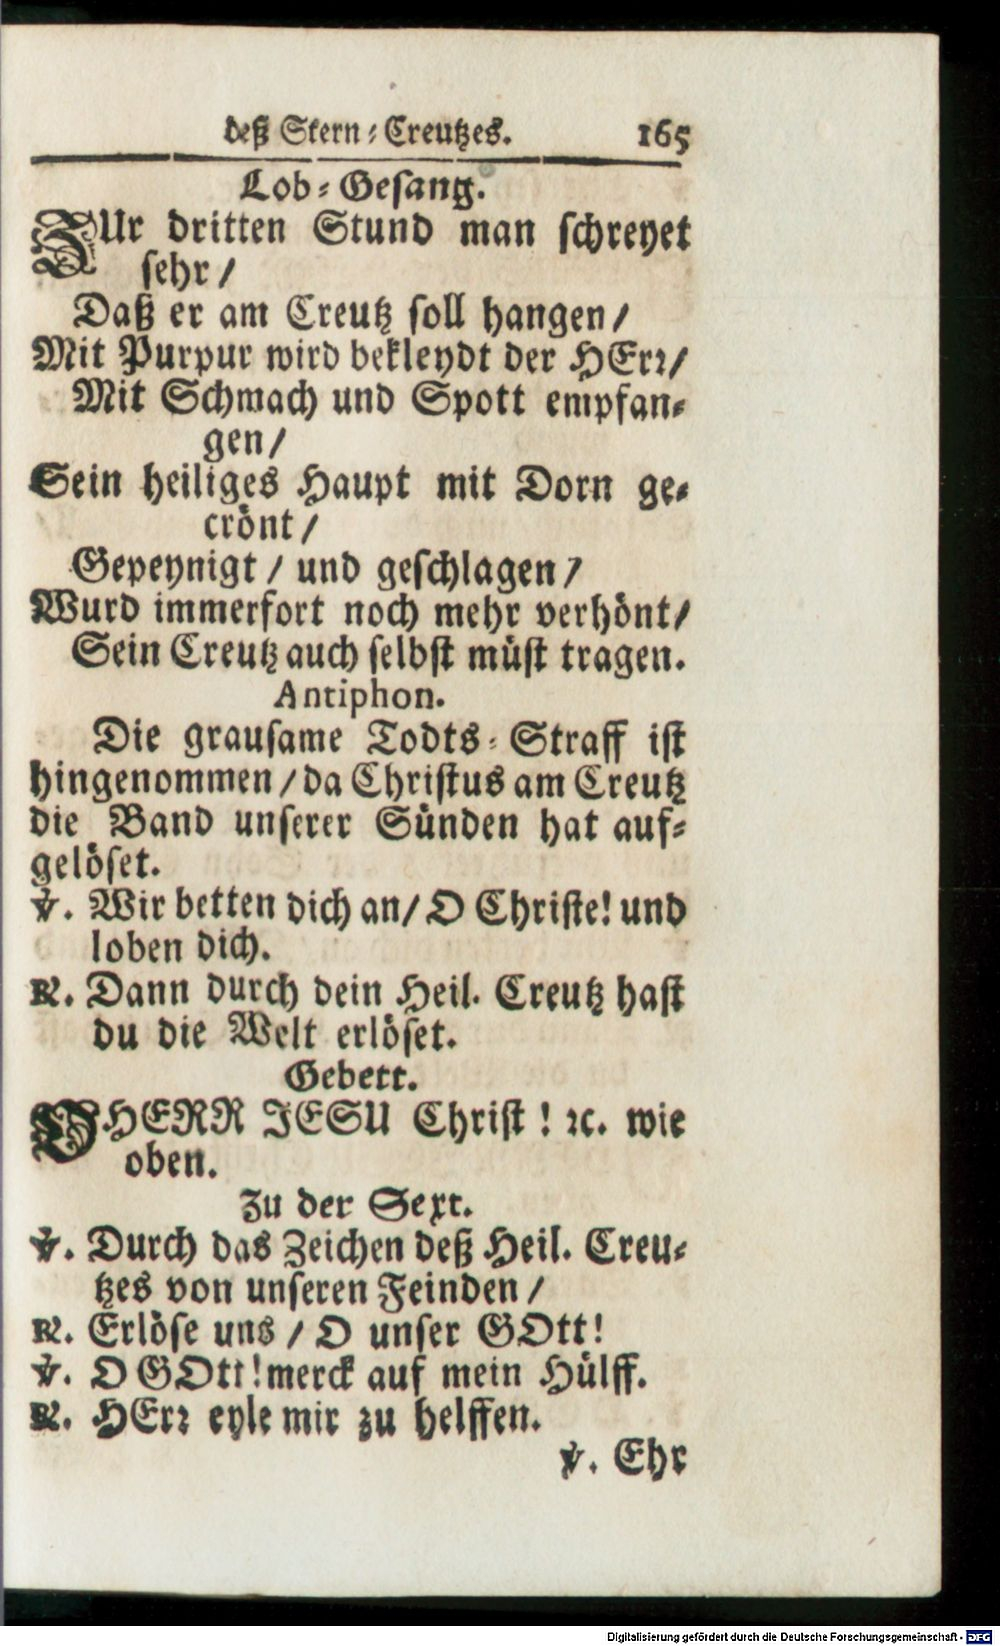 deß Stern-Creutzes. 165
Lob-Gesang.
ZUr dritten Stund man schreyet
sehr/
Daß er am Creutz soll hangen/
Mit Purpur wird bekleydt der HErr/
Mit Schmach und Spott empfan-
gen/
Sein heiliges Haupt mit Dorn ge-
crönt/
Gepeynigt / und geschlagen/
Wurd immerfort noch mehr verhönt/
Sein Creutz auch selbst müst tragen.
Antiphon.
Die grausame Todts-Straff ist
hingenommen / da Christus am Creutz
die Band unserer Sünden hat auf-
gelöset.
℣. Wir betten dich an/ O Christe! und
loben dich.
℟. Dann durch dein Heil. Creutz hast
du die Welt erlöset.
Gebett.
O HERR JESU Christ! ꝛc. wie
oben.
Zu der Sext.
℣. Durch das Zeichen deß Heil. Creu-
tzes von unseren Feinden /
℟. Erlöse uns / O unser GOtt!
℣. O GOtt! merck auf mein Hülff.
℟. HErr eyle mir zu helffen.
℣. Ehr
Digitalisierung gefördert durch die Deutsche Forschungsgemeinschaft - DFG